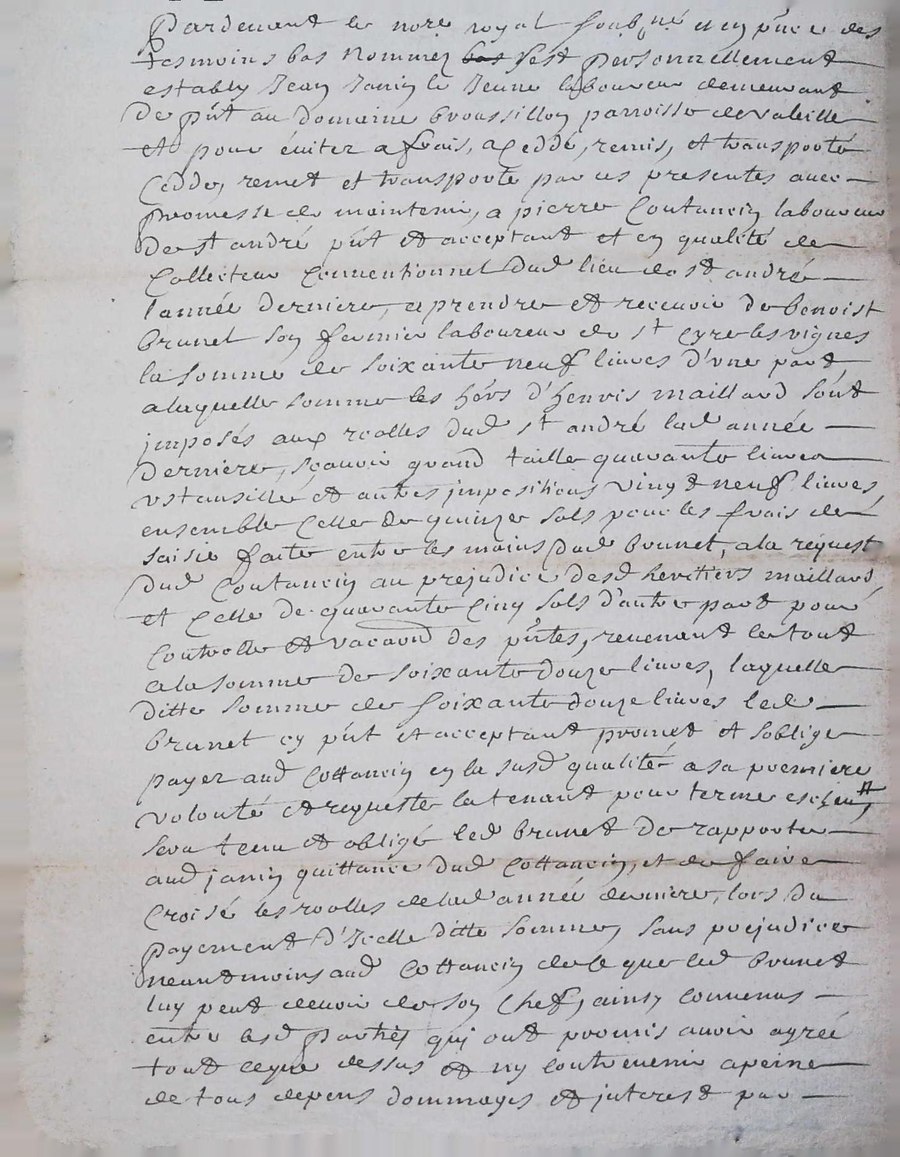 Pardevant le nore royal soubné et en pnce des
tesmoins bas nommez bas sest personnellement
estably Jean Janin le Jeune laboureur demeurant
de pnt au domaine broussillon parroisse de valeille
et pour éviter a frais, a ceddé, remis, et transporté
cedde, remet et transporte par ces presentes avec
promesse de maintenir, a pierre Coutancin laboureur
de st andré pnt et acceptant et en qualité de
Collecteur Conventionnel dud lieu de st andré
l'année derniere, a prendre et recevoir de benoist
brunet son fermier laboureur de st Cyre les vignes
la somme de soixante neuf livres d'une part
a laquelle somme les hérs d'henris maillard sont
imposés aux roolles dud st andré lad année
derniere, sçavoir grand taille quarante livres
ustansille et autres impositions vingt neuf livres,
ensemble celle de quinze sols pour les frais de
saisie faite entre les mains dud brunet, a la requeste
dud Coutancin au prejudice desd heritiers maillard
et celle de quarante cinq sols d'autre part pour
Controlle et vacaond des pntes, revenant le tout
a la somme de soixante douze livres, laquelle
ditte somme de soixante douze livres led
brunet cy pnt et acceptant promet et s'oblige
payer aud Cottancin en la susd qualité a sa premiere
volonté et requeste la tenant pour terme escheu,
sera tenu et obligé led brunet de rapporter
aud janin quittance dud Cottancin, et de faire
Croisé les roolles de lad année derniere, lors du
payement d'Icelle ditte somme, sans prejudice
neantmoins aud Cottancin de ce que led brunet
luy peut devoir de son Chef, ainsy convenus
entre lesd parties qui ont promis avoir agreé
tout ce que dessus et ny contrevenir a peine
de tous depens dommages et interest par